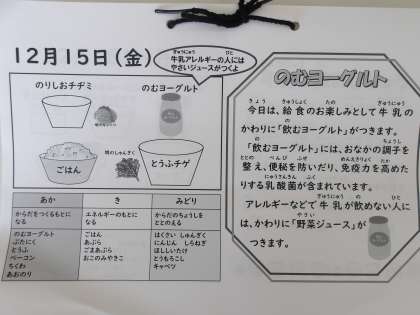 12月15日(金)
牛乳アレルギーの人には
やさいジュースがつくよ
のりしおチヂミ
のむヨーグルト
ごはん
とうふチゲ
あか き みどり
からだをつくるもとに
なる
エネルギーのもとに
なる
からだのちょうしを
ととのえる
のむヨーグルト
ぶたにく
とうふ
ベーコン
ちくわ
あおのり
ごはん
あぶら
ごまあぶら
おこのみやきこ
はくさい しゅんぎく
にんじん しらねぎ
ほししいたけ
とうもろこし
キャベツ
のむヨーグルト
今日は、給食のお楽しみとして牛乳の
かわりに「飲むヨーグルト」がつきます。
「飲むヨーグルト」には、おなかの調子を
整え、便秘を防いだり、免疫力を高めた
りする乳酸菌が含まれています。
アレルギーなどで牛乳が飲めない人に
は、かわりに「野菜ジュース」が
つきます。